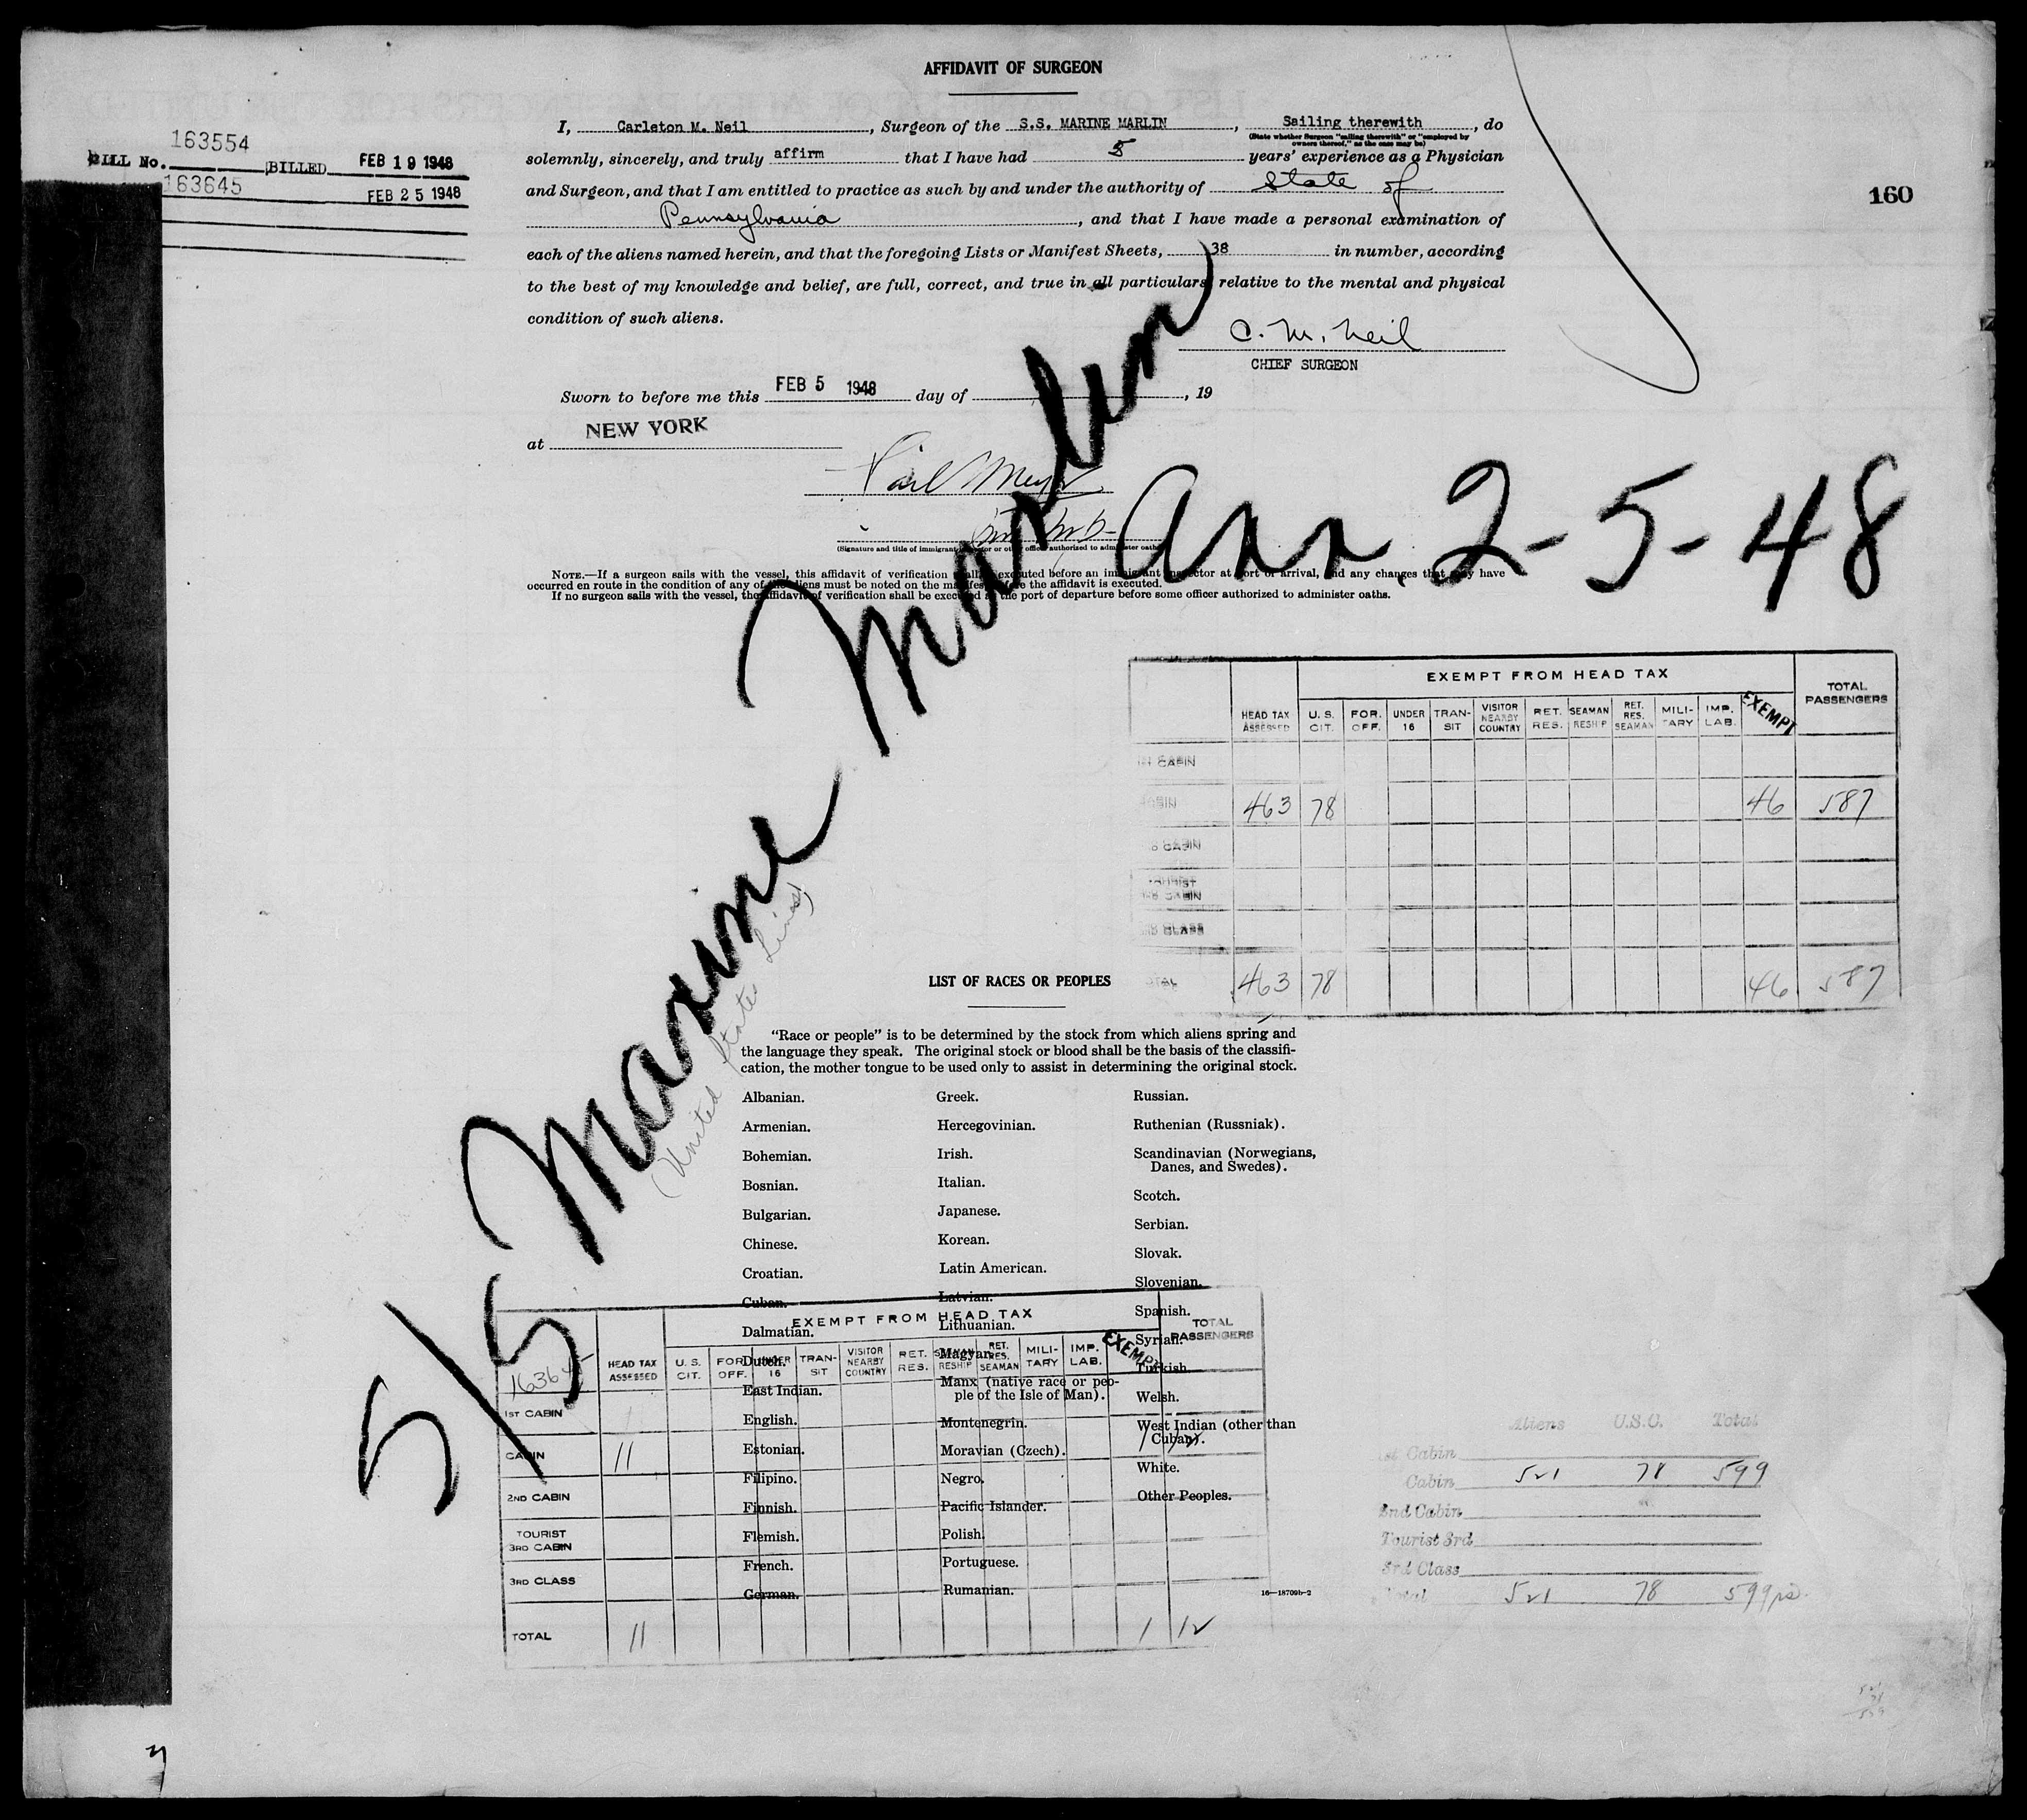 AFFIDAVIT OF SURGEON
163554
BILL No. BILLED FEB 19 1948
163645 FEB 25 1948
160
I, Carleton M. Neil, Surgeon of the S.S. MARINE MARLIN, Sailing therewith, do
(State whether Surgeon "sailing therewith" or "employed by
owners thereof," as the case may be)
solemnly, sincerely, and truly affirm that I have had 5 years' experience as a Physician
and Surgeon, and that I am entitled to practice as such by and under the authority of State of
Pennsylvania, and that I have made a personal examination of
each of the aliens named herein, and that the foregoing Lists or Manifest Sheets, 38 in number, according
to the best of my knowledge and belief, are full, correct, and true in all particulars, relative to the mental and physical
condition of such aliens.
C. M. Neil
CHIEF SURGEON
Sworn to before me this FEB 5 1948 day of , 19
at NEW YORK
(Signature and title of immigrant inspector or other officer authorized to administer oaths)
NOTE.—If a surgeon sails with the vessel, this affidavit of verification shall be executed before an immigrant inspector at port of arrival, and any changes that may have
occurred en route in the condition of any of the aliens must be noted on the manifest before the affidavit is executed.
If no surgeon sails with the vessel, the affidavit of verification shall be executed at the port of departure before some officer authorized to administer oaths.
S/S Marine Marlin
arr 2-5-48
(United States Lines)
EXEMPT FROM HEAD TAX
HEAD TAX ASSESSED U.S. CIT. FOR. OFF. UNDER 16 TRANSIT VISITOR NEARBY COUNTRY RET. RES. SEAMAN RESHIP RET. RES. SEAMAN MILITARY IMP. LAB. EXEMPT TOTAL PASSENGERS
CABIN
CABIN 463 78 46 587
CABIN
CABIN
CLASS
TOTAL 463 78 46 587
LIST OF RACES OR PEOPLES
"Race or people" is to be determined by the stock from which aliens spring and
the language they speak. The original stock or blood shall be the basis of the classifi-
cation, the mother tongue to be used only to assist in determining the original stock.
Albanian.
Armenian.
Bohemian.
Bosnian.
Bulgarian.
Chinese.
Croatian.
Cuban.
Dalmatian.
Dutch.
East Indian.
English.
Estonian.
Filipino.
Finnish.
Flemish.
French.
German.
Greek.
Hercegovinian.
Irish.
Italian.
Japanese.
Korean.
Latin American.
Latvian.
Lithuanian.
Magyar.
Manx (native race or peo-
ple of the Isle of Man).
Montenegrin.
Moravian (Czech).
Negro.
Pacific Islander.
Polish.
Portuguese.
Rumanian.
Russian.
Ruthenian (Russniak).
Scandinavian (Norwegians,
Danes, and Swedes).
Scotch.
Serbian.
Slovak.
Slovenian.
Spanish.
Syrian.
Turkish.
Welsh.
West Indian (other than
Cuban).
White.
Other Peoples.
16—18709b-2
EXEMPT FROM HEAD TAX
163645 HEAD TAX ASSESSED U.S. CIT. FOR. OFF. UNDER 16 TRANSIT VISITOR NEARBY COUNTRY RET. RES. SEAMAN RESHIP RET. RES. SEAMAN MILITARY IMP. LAB. EXEMPT TOTAL PASSENGERS
1ST CABIN
CABIN 11 1 12
2ND CABIN
TOURIST
3RD CABIN
3RD CLASS
TOTAL 11 1 12
Aliens U.S.C. Total
1st Cabin
Cabin 521 78 599
2nd Cabin
Tourist 3rd
3rd Class
Total 521 78 599